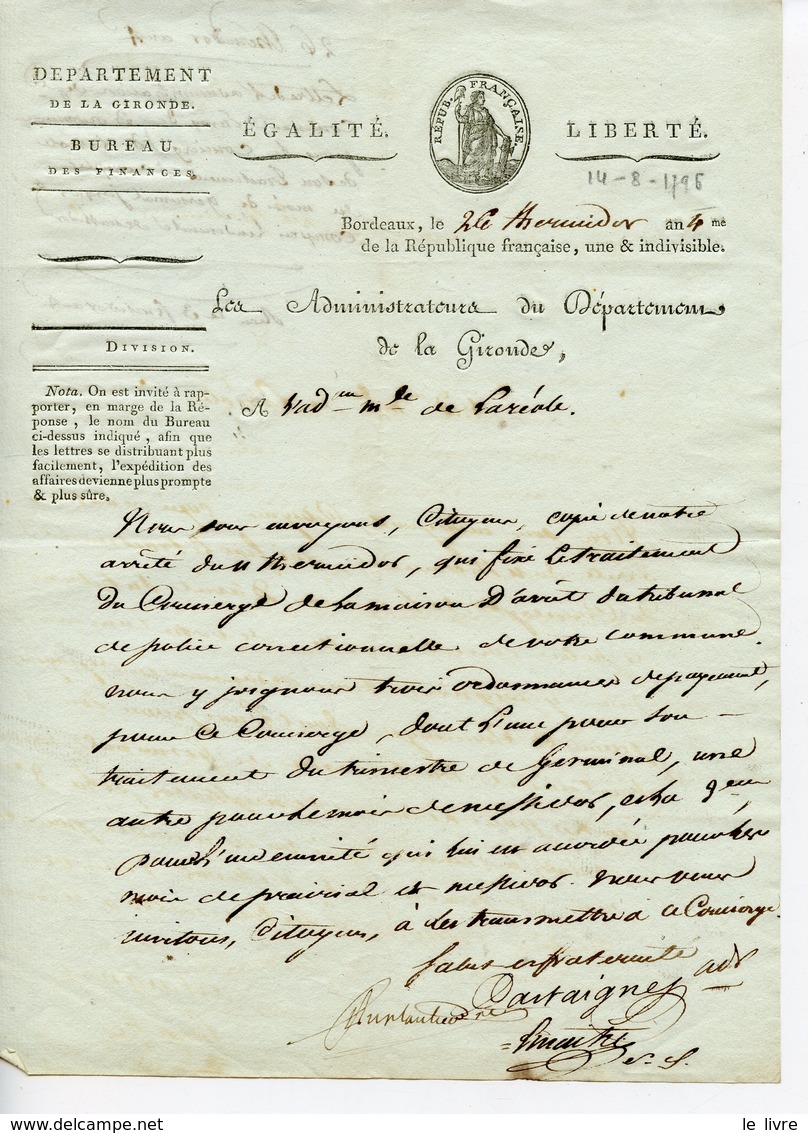 DEPARTEMENT
DE LA GIRONDE.
BUREAU
DES FINANCES.
ÉGALITÉ.
RÉPUB. FRANÇAISE.
LIBERTÉ.
14-8-1796
Bordeaux, le 26 thermidor an 4me
de la République française, une & indivisible.
Les Administrateurs du Département
de la Gironde,
DIVISION.
Nota. On est invité à rap-
porter, en marge de la Ré-
ponse, le nom du Bureau
ci-dessus indiqué, afin que
les lettres se distribuant plus
facilement, l'expédition des
affaires devienne plus prompte
& plus sûre.
A l'ad.on m.le de Laréole.
Nous vous envoyons, Citoyens, copie de notre
arrêté du 11 thermidor, qui fixe le traitement
du Concierge de la maison d'arrêt du tribunal
de police correctionnelle de votre commune.
nous y joignons trois ordonnances de payement,
pour ce Concierge, dont l'une pour son
traitement du trimestre de Germinal, une
autre pour le mois de messidor, et la 3eme,
pour l'indemnité qui lui est accordée pour les
mois de prairial et messidor. nous vous
invitons, Citoyens, à les transmettre à ce Concierge.
Salut et fraternité
Dartaigney adr
S. G.
le livre